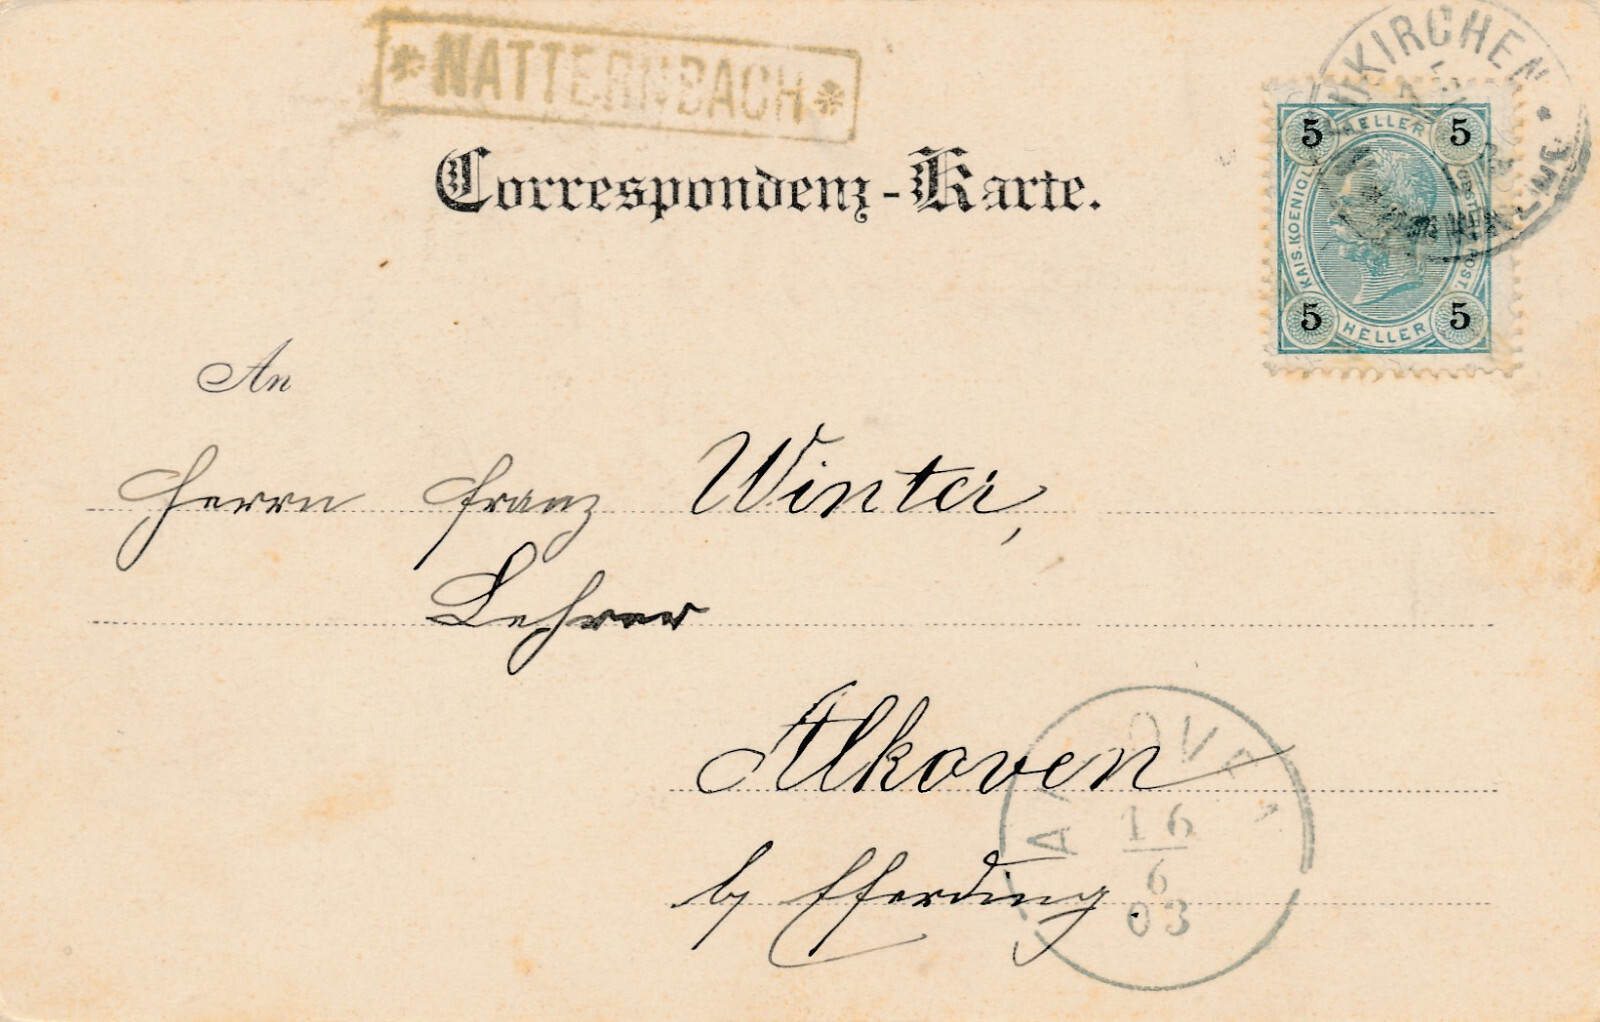 * NATTERNBACH *
Correspondenz-Karte.
5 HELLER 5
KAIS. KOENIGL.
POST
5 HELLER 5
An
Herrn Franz Winter,
Lehrer
Alkoven
b/ Efferding.
16
6
03